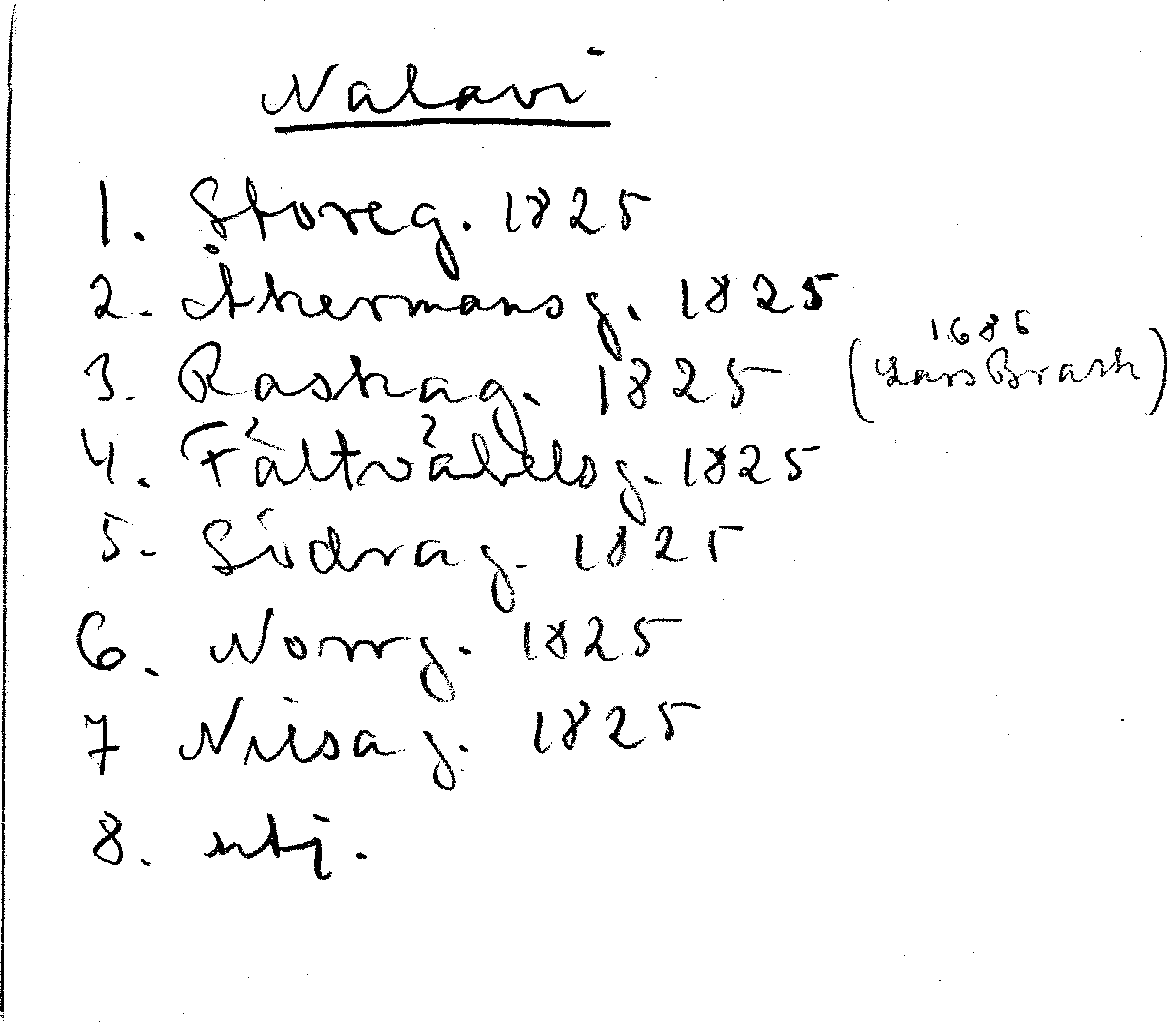 Nalavi
1. Storeg. 1825
2. Åkermans g. 1825
3. Raskag. 1825 (Lars Brask)
1685
4. Fältväbels g. 1825
5. Södra g. 1825
6. Norrg. 1825
7 Nilsa g. 1825
8. utj.